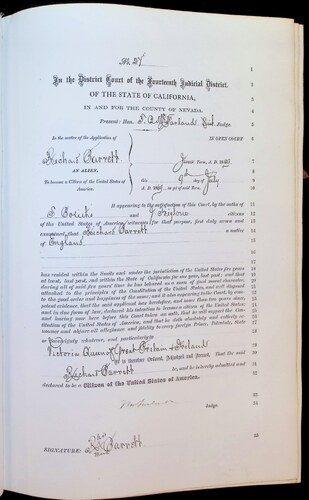 No. 24
In the District Court of the Fourteenth Judicial District,
OF THE STATE OF CALIFORNIA,
IN AND FOR THE COUNTY OF NEVADA.
Present: Hon. T. B. McFarland Dist. Judge.
In the matter of the Application of
IN OPEN COURT
Richard Barrett
June Term, A. D.
AN ALIEN,
9th day of July
To become a Citizen of the United States of America.
A. D. as yet of said Term.
It appearing to the satisfaction of this Court, by the oaths of
and citizens
of the United States of America, witnesses for that purpose, first duly sworn and
examined, that Richard Barrett a native
of England
has resided within the limits and under the jurisdiction of the United States five years
at least, last past, and within the State of California for one year, last past; and that
during all of said five years' time he has behaved as a man of good moral character,
attached to the principles of the Constitution of the United States, and well disposed
to the good order and happiness of the same; and it also appearing to the Court, by
evidence, that the said applicant has heretofore, and more than two years since,
and in due form of law, declared his intention to become a citizen of the United States;
and having now here before this Court taken an oath, that he will support the
Constitution of the United States of America, and that he doth absolutely and entirely
renounce and abjure all allegiance and fidelity to every foreign Prince, Potentate, State
or Sovereignty whatever, and particularly to
Victoria Queen of Great Britain & Ireland
It is therefore Ordered, Adjudged and Decreed, That the said
Richard Barrett be, and he is hereby admitted and
declared to be a Citizen of the United States of America.
McFarland Judge.
his
SIGNATURE: R X Barrett
mark